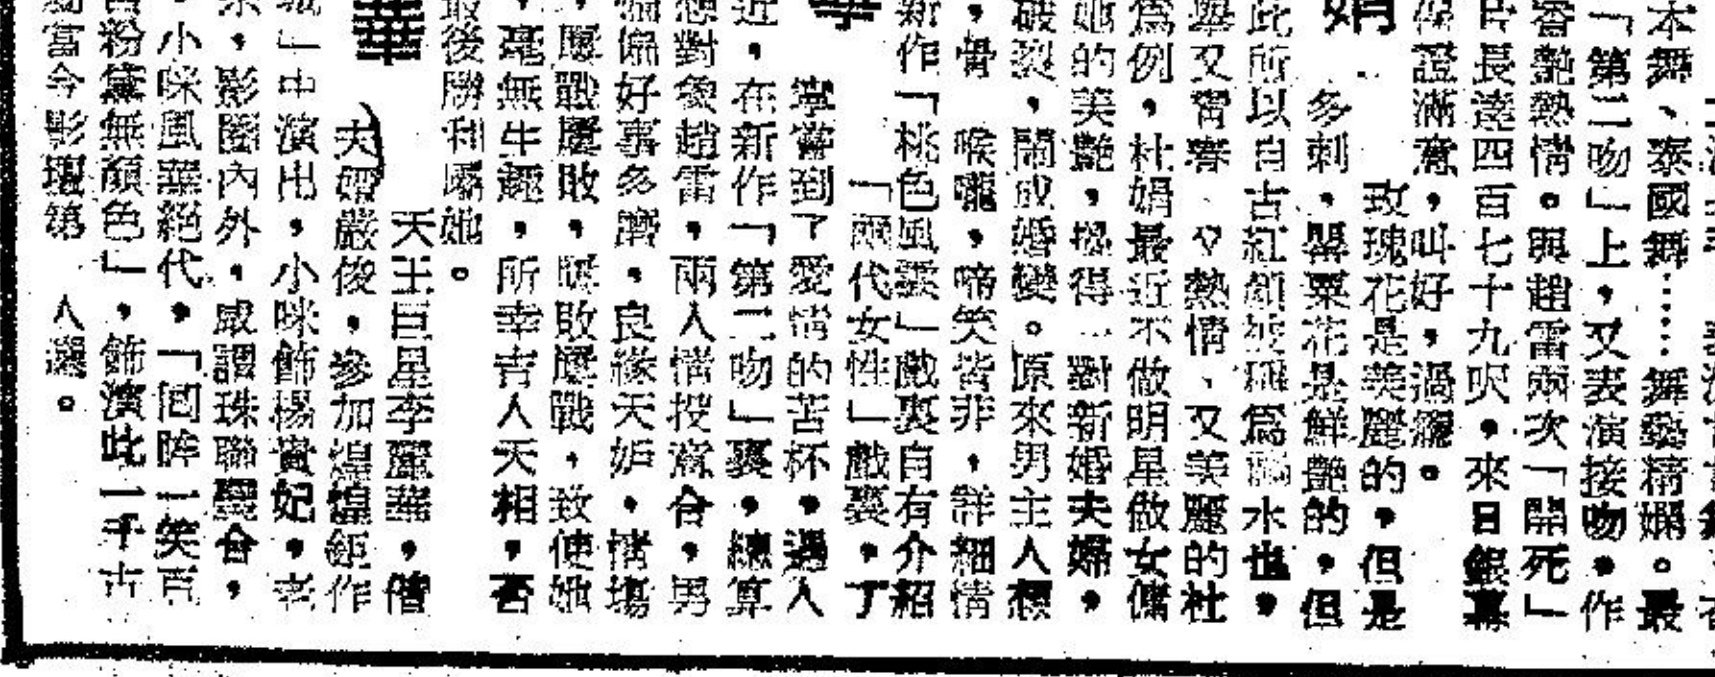 本舞、泰國舞……舞藝精嫻。最
「第二吻」上，又表演接吻，作
香艷熱情。與趙雷兩次「開死」
片長達四百七十九呎，來日銀幕
保證滿意，叫好，過癮。
娟
玫瑰花是美麗的，但是
多刺，罌粟花是鮮艷的，但
此所以自古紅顏被稱為禍水也，
舉又青春、又熱情、又美麗的杜
為例，杜娟最近不做明星做女傭
她的美艷，搗得一對新婚夫婦，
破裂，鬧成婚變。原來男主人想
，骨 喉嚨，啼笑皆非，詳細情
新作「桃色風雲」戲裏自有介紹
「兩代女性」戲裏，丁
寧嘗到了愛情的苦杯，遇人
近，在新作「第二吻」裏，總算
想對象趙雷，兩人情投意合，男
偏偏好事多磨，良緣天妒，情場
，屢戰屢敗，屢敗屢戰，致使她
，毫無生趣，所幸吉人天相，否
最後勝利屬她。
華）
天王巨星李麗華，偕
夫婿嚴俊，參加煌煌鉅作
城」中演出，小咪飾楊貴妃，老
宗，影圈內外，咸謂珠聯璧合，
，小咪風華絕代，「回眸一笑百
宮粉黛無顏色」，飾演此一千古
為當今影壇第 人選。